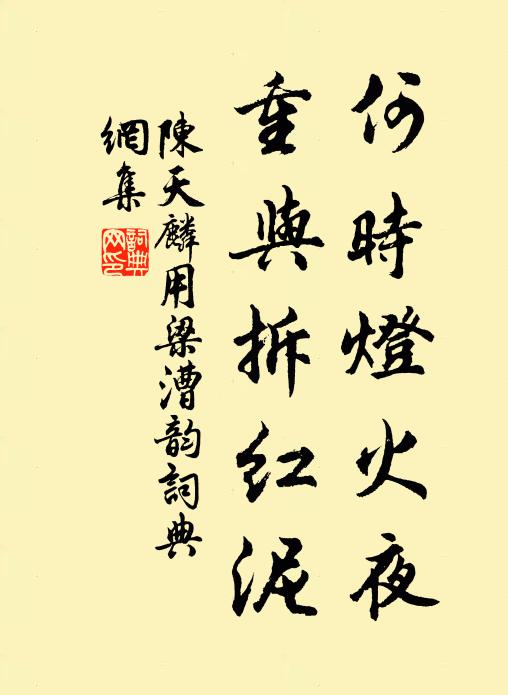 何時燈火夜
重與拆紅泥
陳天麟用梁漕韵詞典
網集
詞典
网印